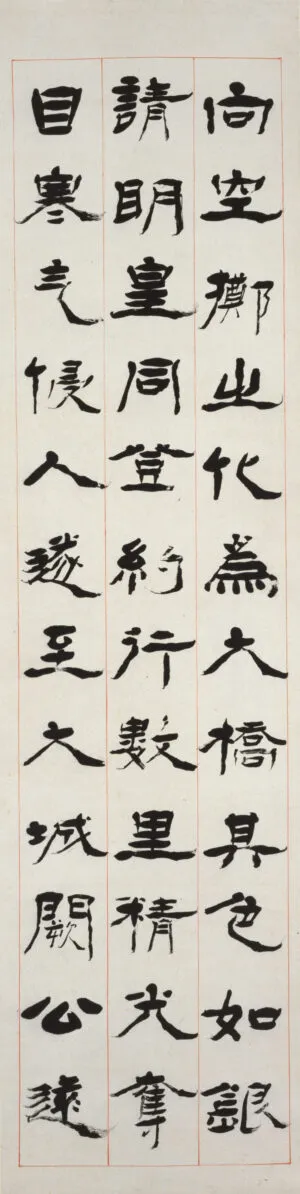 向空擲之化為大橋其色如銀
請明皇同登約行數里精光奪
目寒气侵人遂至大城闕公遠